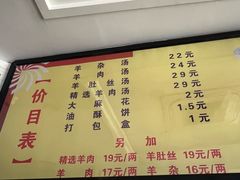 【价目表】
羊杂汤 22元
羊肉汤 24元
羊肚丝汤 29元
精选羊肉汤 29元
大麻花 2元
油酥饼 1.5元
打包盒 1元
另加
精选羊肉 19元/两 羊肚丝 19元/两
羊肉 17元/两 羊杂 16元/两